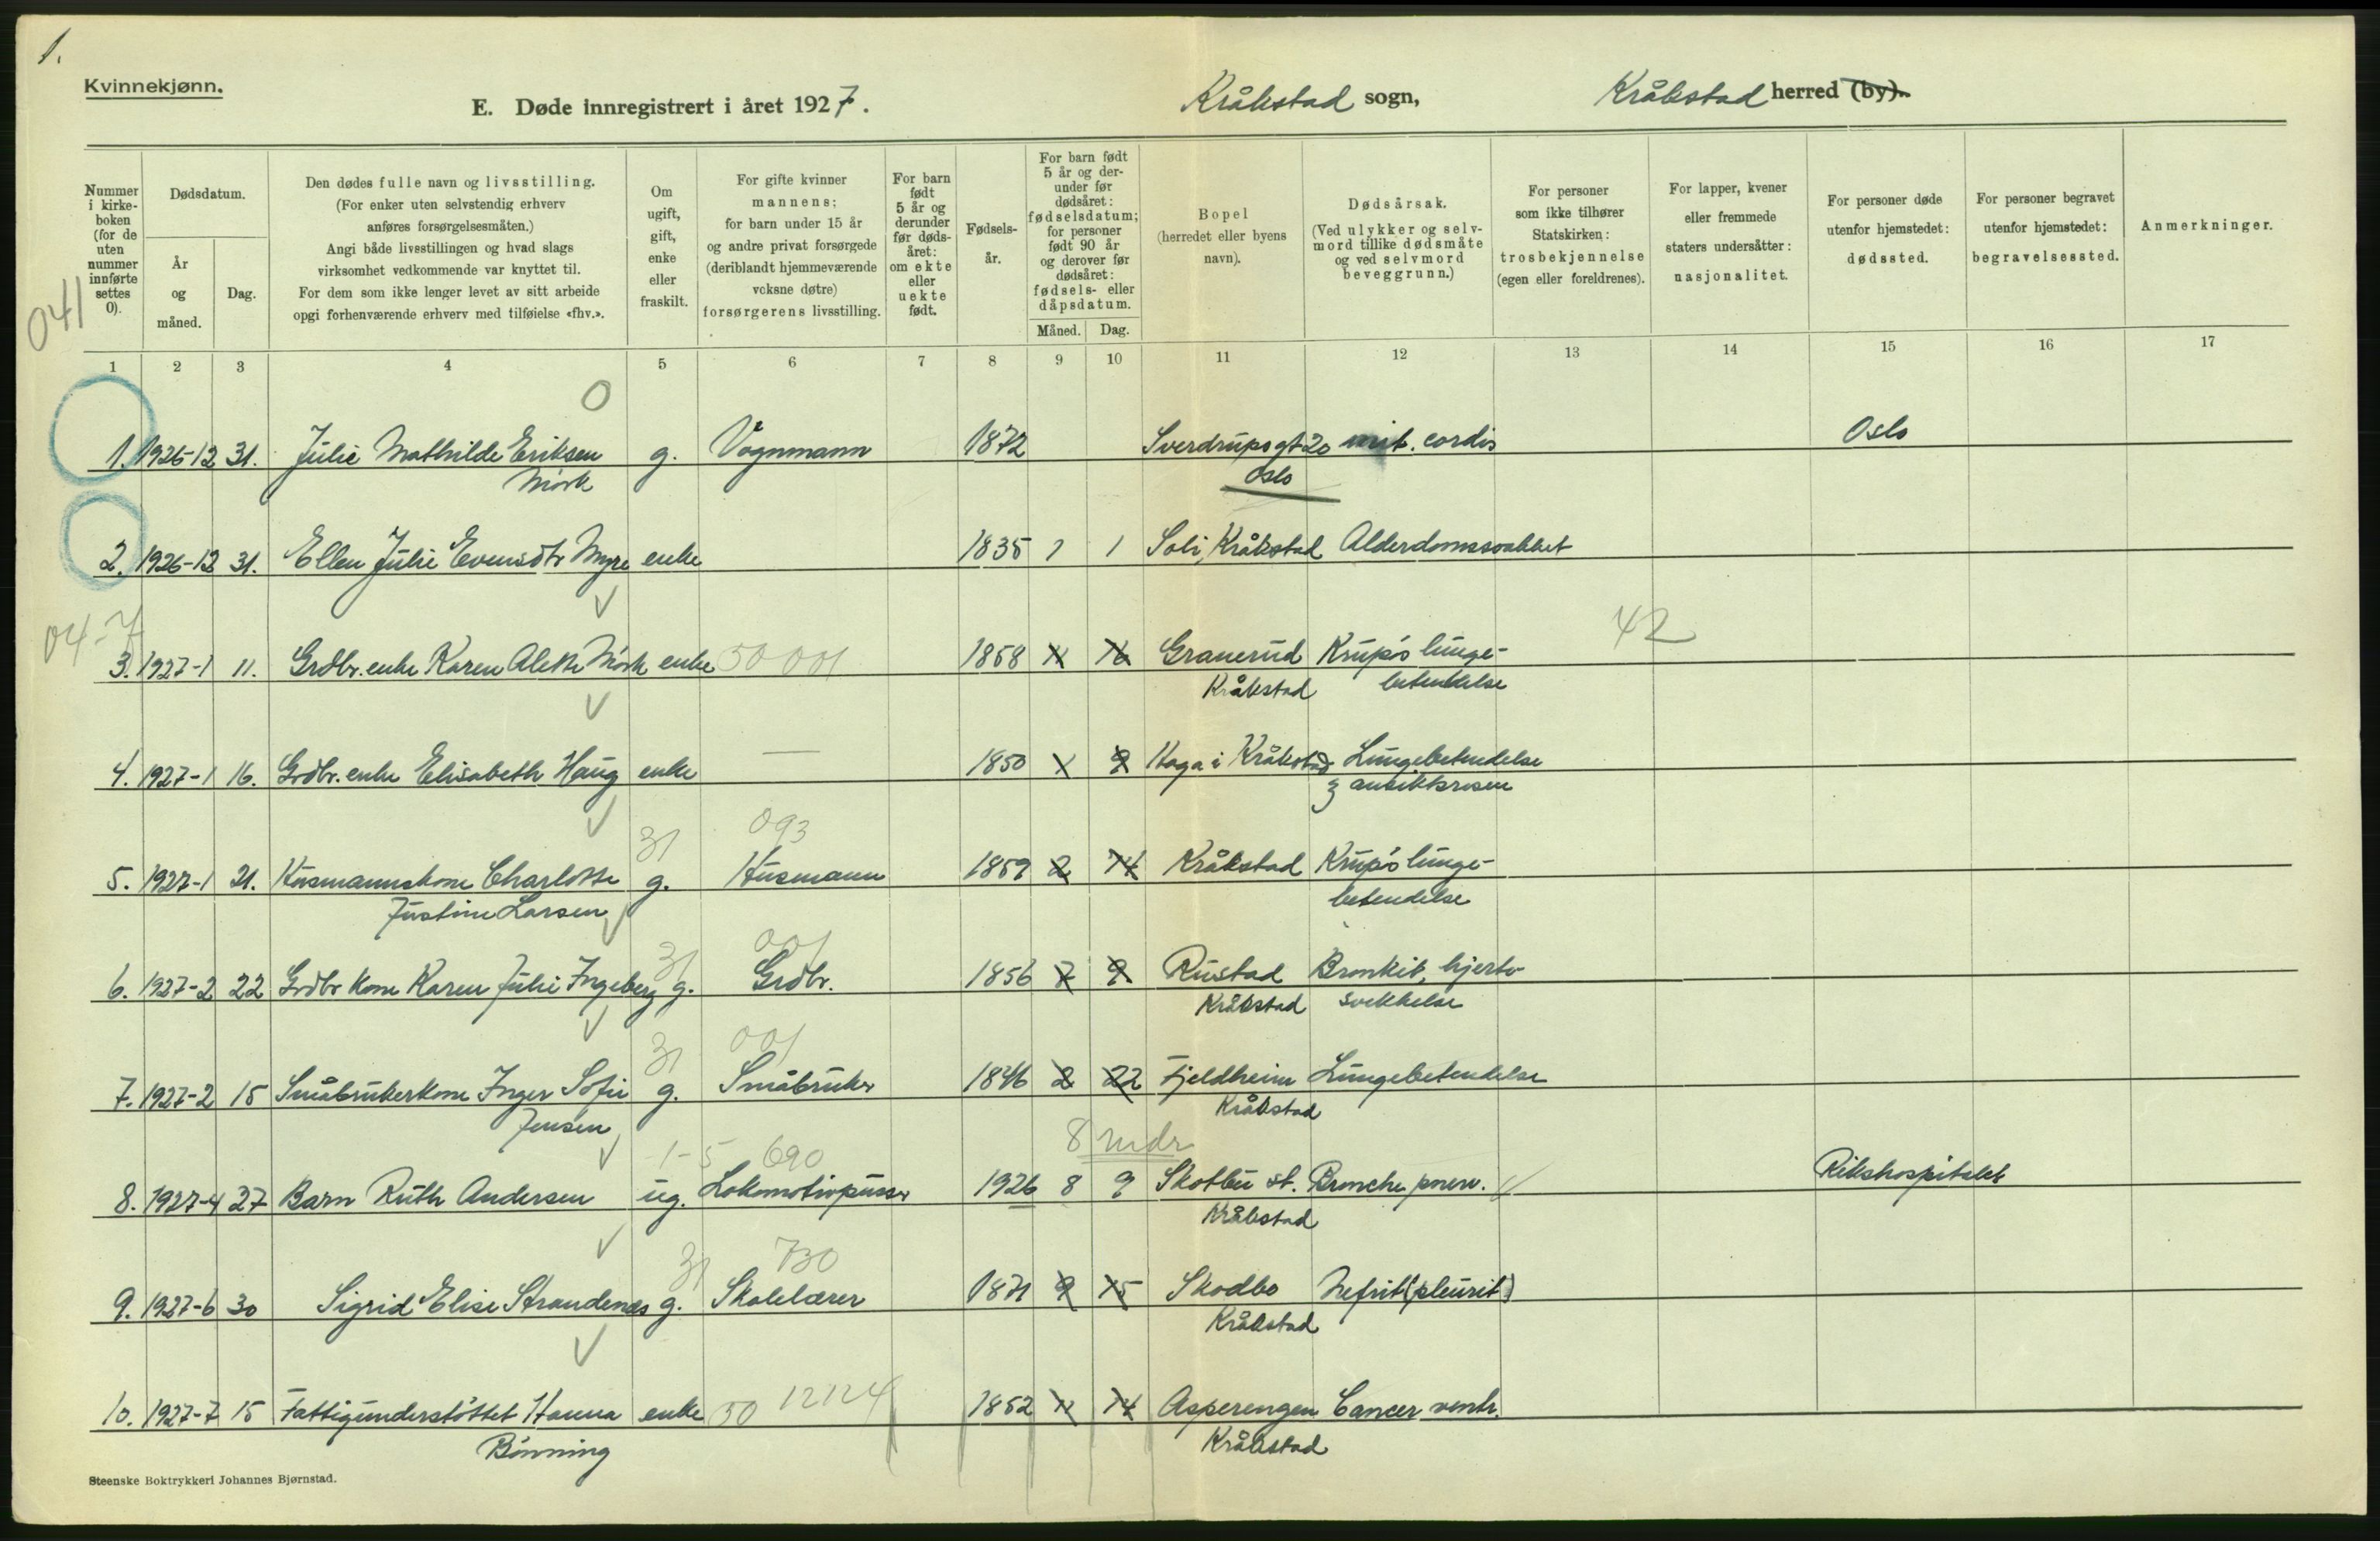 1.
Kvinnekjønn.
E. Døde innregistrert i året 1927.
Kråkstad sogn,
Kråkstad herred (by).
Nummer i kirke-boken (for de uten nummer innførte settes 0).
Dødsdatum.
År og måned.
Dag.
Den dødes fulle navn og livsstilling.
(For enker uten selvstendig erhverv
anføres forsørgelsesmåten.)
Angi både livsstillingen og hvad slags
virksomhet vedkommende var knyttet til.
For dem som ikke lenger levet av sitt arbeide
opgi forhenværende erhverv med tilføielse «fhv.».
Om ugift, gift, enke eller fraskilt.
For gifte kvinner
mannens;
for barn under 15 år
og andre privat forsørgede
(deriblandt hjemmeværende
voksne døtre)
forsørgerens livsstilling.
For barn født 5 år og derunder før døds-året: om ekte eller uekte født.
Fødsels-år.
For barn født 5 år og der-under før dødsåret: fødselsdatum; for personer født 90 år og derover før dødsåret: fødsels- eller dåpsdatum.
Måned. Dag.
Bopel
(herredet eller byens
navn).
Dødsårsak.
(Ved ulykker og selv-
mord tillike dødsmåte
og ved selvmord
beveggrunn.)
For personer
som ikke tilhører
Statskirken:
trosbekjennelse
(egen eller foreldrenes).
For lapper, kvener
eller fremmede
staters undersåtter:
nasjonalitet.
For personer døde
utenfor hjemstedet:
dødssted.
For personer begravet
utenfor hjemstedet:
begravelsessted.
Anmerkninger.
041
1 2 3 4 5 6 7 8 9 10 11 12 13 14 15 16 17
0
1. 1926-12 31. Julie Mathilde Eriksen g. Vognmann 1872 Sverdrupsgt 20 mit. cordis Oslo
Mørk Oslo
2. 1926-12 31. Ellen Julie Evensdtr Myre enke 1835 1 1 Soli, Kråkstad Alderdomssvakhet
04-7
42
3. 1927-1 11. Grdbr. enke Karen Aleth Mørk enke 50 001 1858 11 16 Granerud Krupøs lunge-
Kråkstad betendelse
4. 1927-1 16. Grdbr. enke Elisabeth Haug enke — 1850 1 9 Haga i Kråkstad Lungebetendelse
& ansiktsrosen
31 093
5. 1927-1 21. Husmannskone Charlotte g. Husmann 1859 2 14 Kråkstad Krupøs lunge-
Justine Larsen betendelse
31 001
6. 1927-2 22 Grdbr kone Karen Julie Ingeberg g. Grdbr. 1856 7 9 Rustad Bronkit, hjerte-
Kråkstad svekkelse
31 001
7. 1927-2 15 Småbrukerkone Inger Sofie g. Småbruker 1846 2 22 Fjeldheim Lungebetendelse
Jensen Kråkstad
1-5 690 8 mdr
8. 1927-4 27 Barn Ruth Andersen ug. Lokomotivpusser 1926 8 9 Skotbu st. Bronche pnevn. Rikshospitalet
Kråkstad
31 730
9. 1927-6 30 Sigrid Elise Strandenæs g. Skolelærer 1871 9 15 Skodbo Nefrit (pleurit)
Kråkstad
10. 1927-7 15 Fattigunderstøttet Hanna enke 50 12124 1852 11 14 Asperengen Cancer ventr.
Bønning Kråkstad
Steenske Boktrykkeri Johannes Bjørnstad.